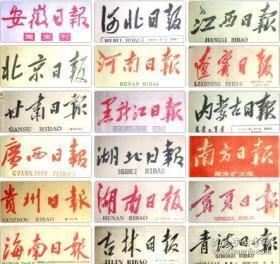 安徽日报
周末刊
河北日报
HEBEI RIBAO
江西日报
JIANGXI RIBAO
北京日报
河南日报
HENAN RIBAO
辽宁日报
LIAONING RIBAO
甘肃日报
GANSU RIBAO
黑龙江日报
内蒙古日报
广西日报
GVANGJSIH YIZBAU
湖北日报
HUBEI RIBAO
南方日报
周末扩大版
贵州日报
GUIZHOU RIBAO
湖南日报
HUNAN RIBAO
宁夏日报
NINGXIA RIBAO
海南日报
HAINAN RIBAO
吉林日报
JILIN RIBAO
青海日报